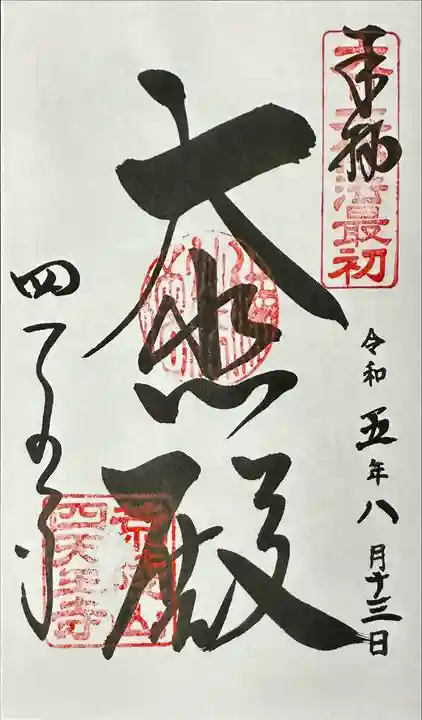 奉拝
法最初
令和五年八月十三日
大悲殿
四天王寺
荒陵山
四天王寺